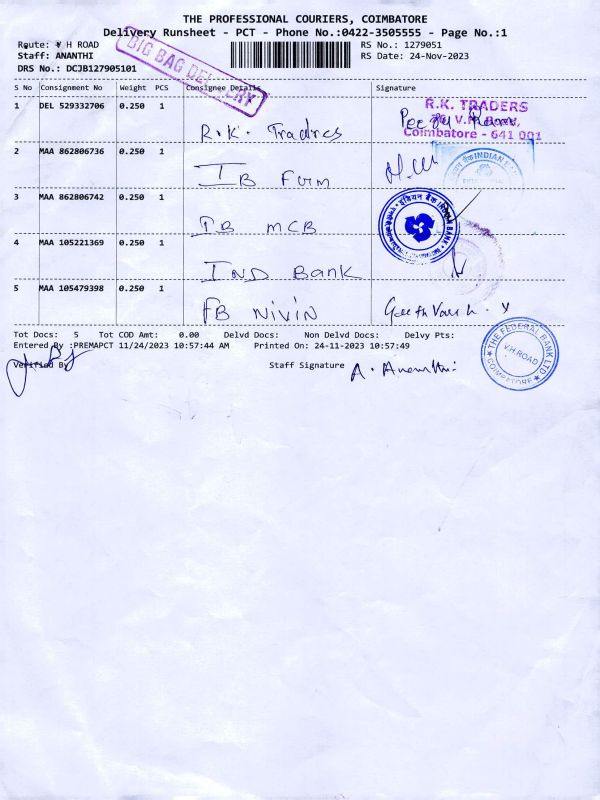 THE PROFESSIONAL COURIERS, COIMBATORE
Delivery Runsheet - PCT - Phone No.:0422-3505555 - Page No.:1
Route: V H ROAD
RS No.: 1279051
Staff: ANANTHI
RS Date: 24-Nov-2023
DRS No.: DCJB127905101
BIG BAG DELIVERY
S No Consignment No Weight PCS Consignee Details Signature
1 DEL 529332706 0.250 1 R.K. Tradres
R.K. TRADERS
Coimbatore - 641 001
2 MAA 862806736 0.250 1 IB Firm
INDIAN
3 MAA 862806742 0.250 1 IB MCB
इंडियन बैंक
4 MAA 105221369 0.250 1 IND Bank
5 MAA 105479398 0.250 1 FB Nivin
Tot Docs: 5 Tot COD Amt: 0.00 Delvd Docs: Non Delvd Docs: Delvy Pts:
Entered By :PREMAPCT 11/24/2023 10:57:44 AM Printed On: 24-11-2023 10:57:49
Verified By Staff Signature A. Ananthi
THE FEDERAL BANK LTD
V.H.ROAD
COIMBATORE